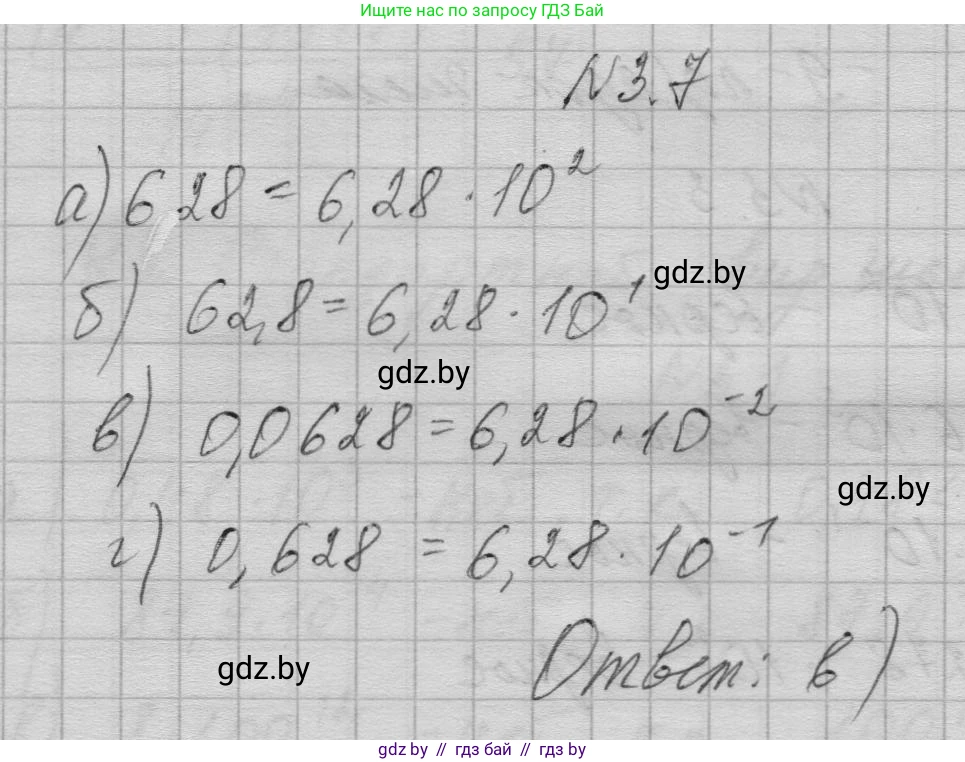 Ищите нас по запросу ГДЗ Бай
N3.7
а) 628 = 6,28 · 10²
gdz.by
б) 62,8 = 6,28 · 10¹
gdz.by
в) 0,0628 = 6,28 · 10⁻²
gdz.by
г) 0,628 = 6,28 · 10⁻¹
gdz.by
Ответ: в)
gdz by // гдз бай // гдз by